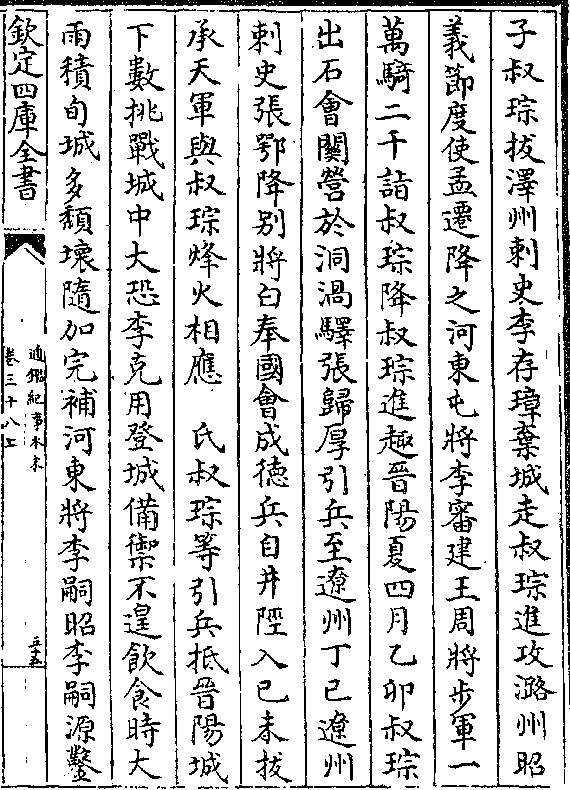 子叔琮拔澤州刺史李存璋棄城走叔琮進攻潞州昭
義節度使孟遷降之河東屯將李審建王周將步軍一
萬騎二千詣叔琮降叔琮進趣晉陽夏四月乙卯叔琮
出石會關營於洞渦驛張歸厚引兵至遼州丁巳遼州
刺史張鄂降别將白奉國會成德兵自井陘入已未拔
承天軍與叔琮烽火相應 氏叔琮等引兵抵晉陽城
下數挑戰城中大恐李克用登城備禦不遑飲食時大
雨積旬城多頽壞隨加完補河東將李嗣昭李嗣源鑿
欽定四庫全書
通鑑紀事本末
卷三十八上